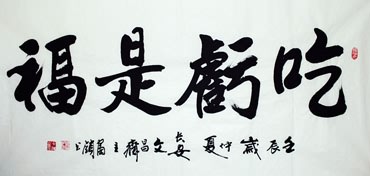 吃虧是福
壬辰歲仲夏長安文昌齋主